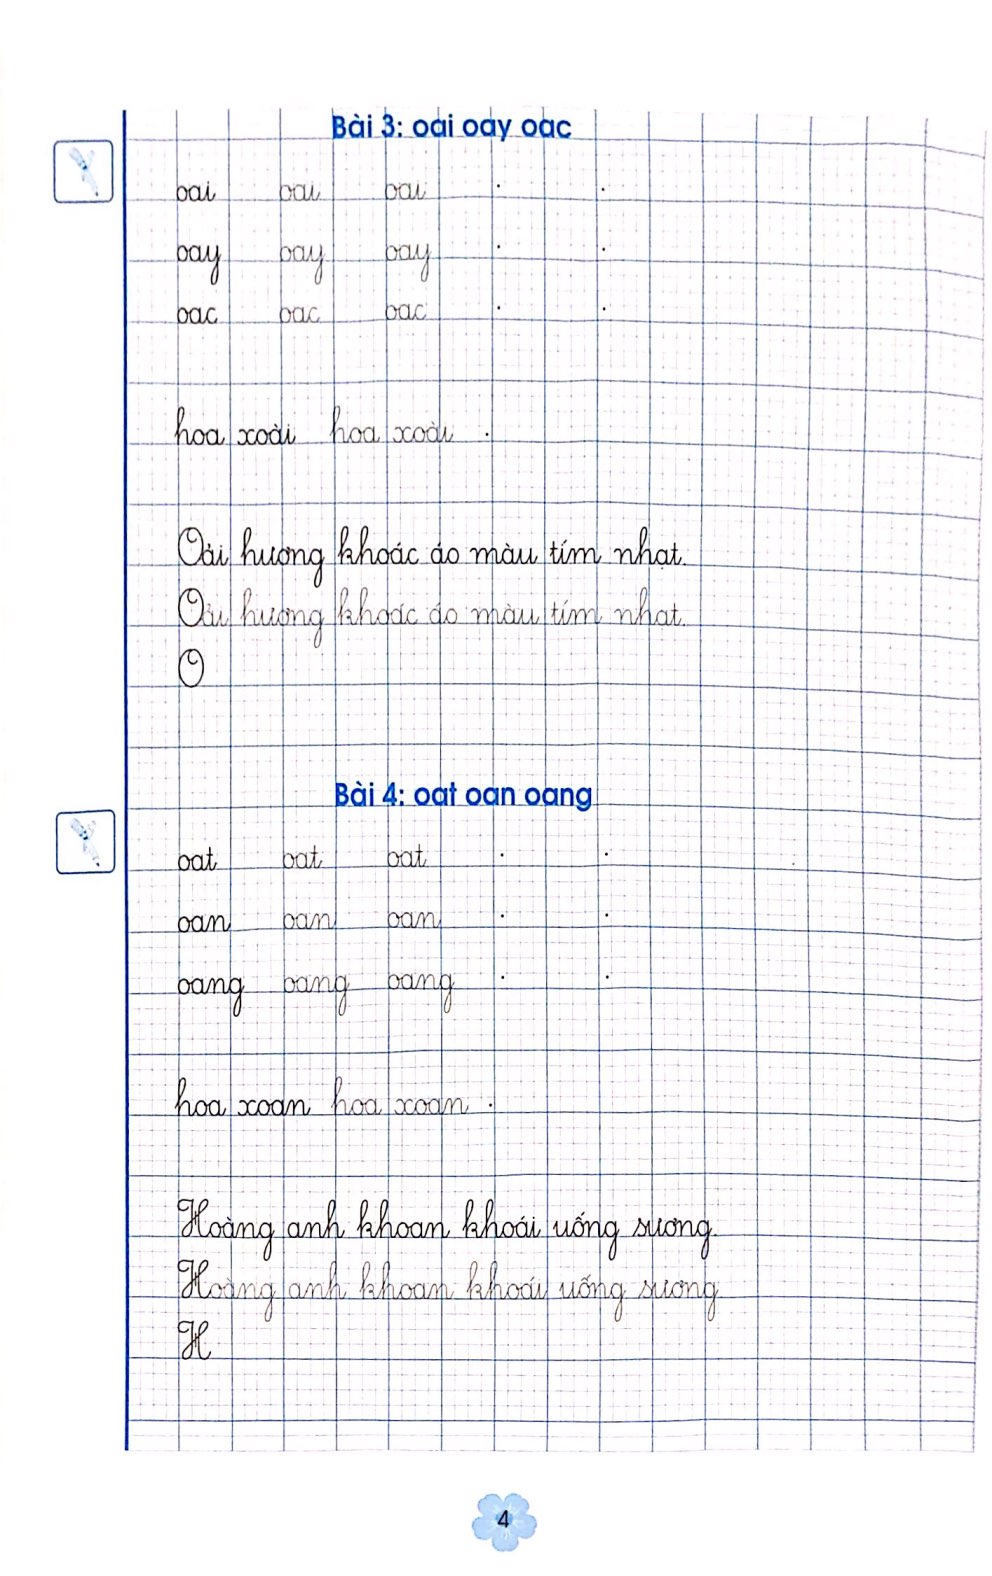 Bài 3: oai oay oac
oai oai oai . .
oay oay oay . .
oac oac oac . .
hoa xoài hoa xoài .
Oải hương khoác áo màu tím nhạt.
Oải hương khoác áo màu tím nhạt.
O
Bài 4: oat oan oang
oat oat oat . .
oan oan oan . .
oang oang oang . .
hoa xoan hoa xoan .
Hoàng anh khoan khoái uống sương.
Hoàng anh khoan khoái uống sương
H
4